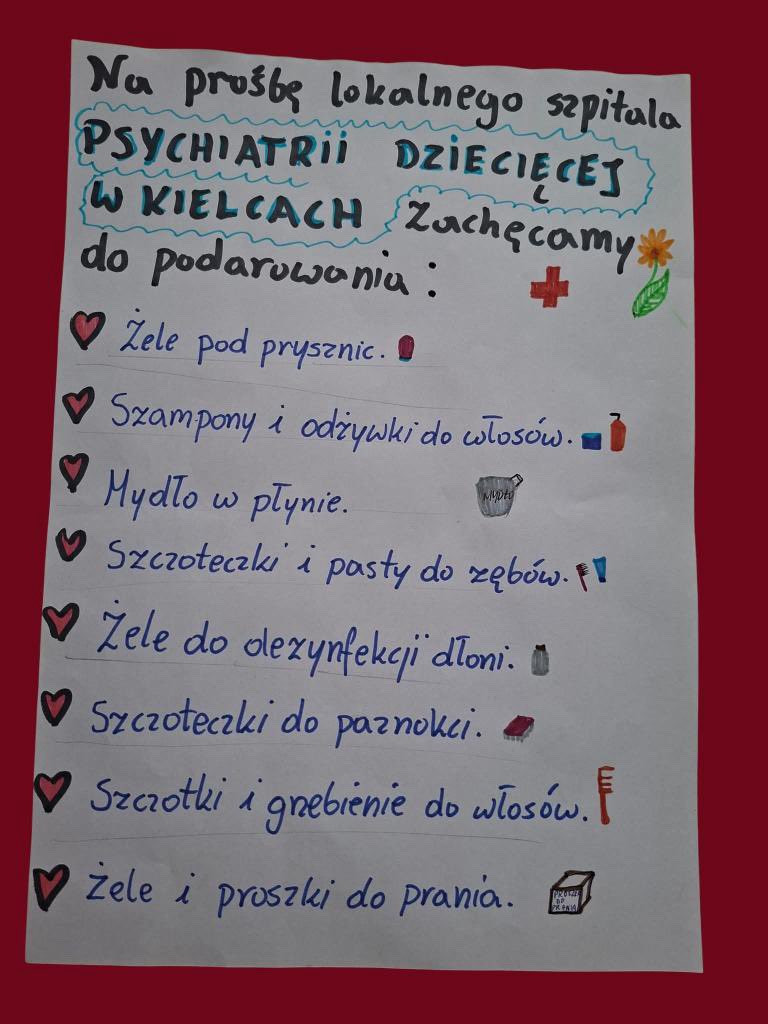 Na prośbę lokalnego szpitala
PSYCHIATRii DZiECIĘCEJ
W KIELCACH zachęcamy
do podarowania:
Żele pod prysznic.
Szampony i odżywki do włosów.
Mydło w płynie.
MYDŁO
Szczoteczki i pasty do zębów.
Żele do dezynfekcji dłoni.
Szczoteczki do paznokci.
Szczotki i grzebienie do włosów.
Żele i proszki do prania.
PROSZEK
DO
PRANIA